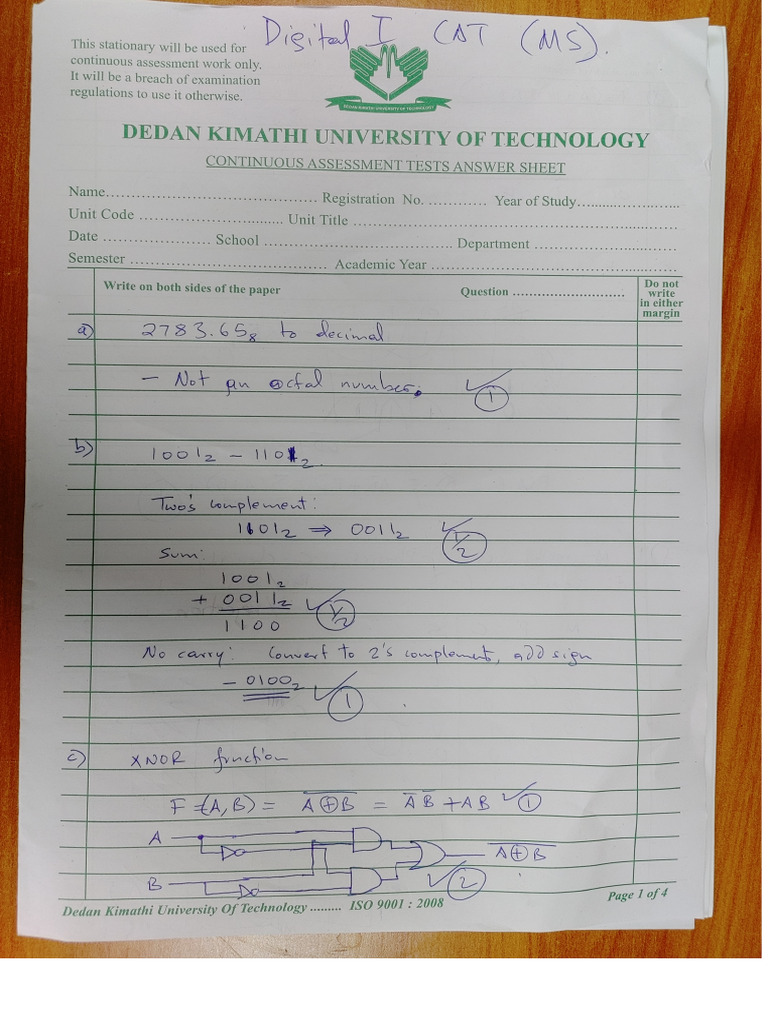 Digital I CAT (MS).
This stationary will be used for
continuous assessment work only.
It will be a breach of examination
regulations to use it otherwise.
DEDAN KIMATHI UNIVERSITY OF TECHNOLOGY
DEDAN KIMATHI UNIVERSITY OF TECHNOLOGY
CONTINUOUS ASSESSMENT TESTS ANSWER SHEET
Name.................................... Registration No. ............ Year of Study........................
Unit Code ........................... Unit Title ................................................................
Date ................... School ..................................... Department ............................
Semester .................................... Academic Year ................................................
Write on both sides of the paper Question ...........................
Do not
write
in either
margin
a) 2783.65₈ to decimal
– Not an octal number. ✓ 1
b) 1001₂ – 1101₂.
Two's complement:
1101₂ ⇒ 0011₂ ✓ 1/2
Sum:
1001₂
+ 0011₂ ✓ 1/2
1100
No carry: Convert to 2's complement, add sign
– 0100₂ ✓ 1
c) XNOR function
F=(A,B) = A̅⊕̅B̅ = A̅ B̅ + AB ✓ 1
A
A̅⊕̅B̅
B ✓ 2
Dedan Kimathi University Of Technology ......... ISO 9001 : 2008 Page 1 of 4